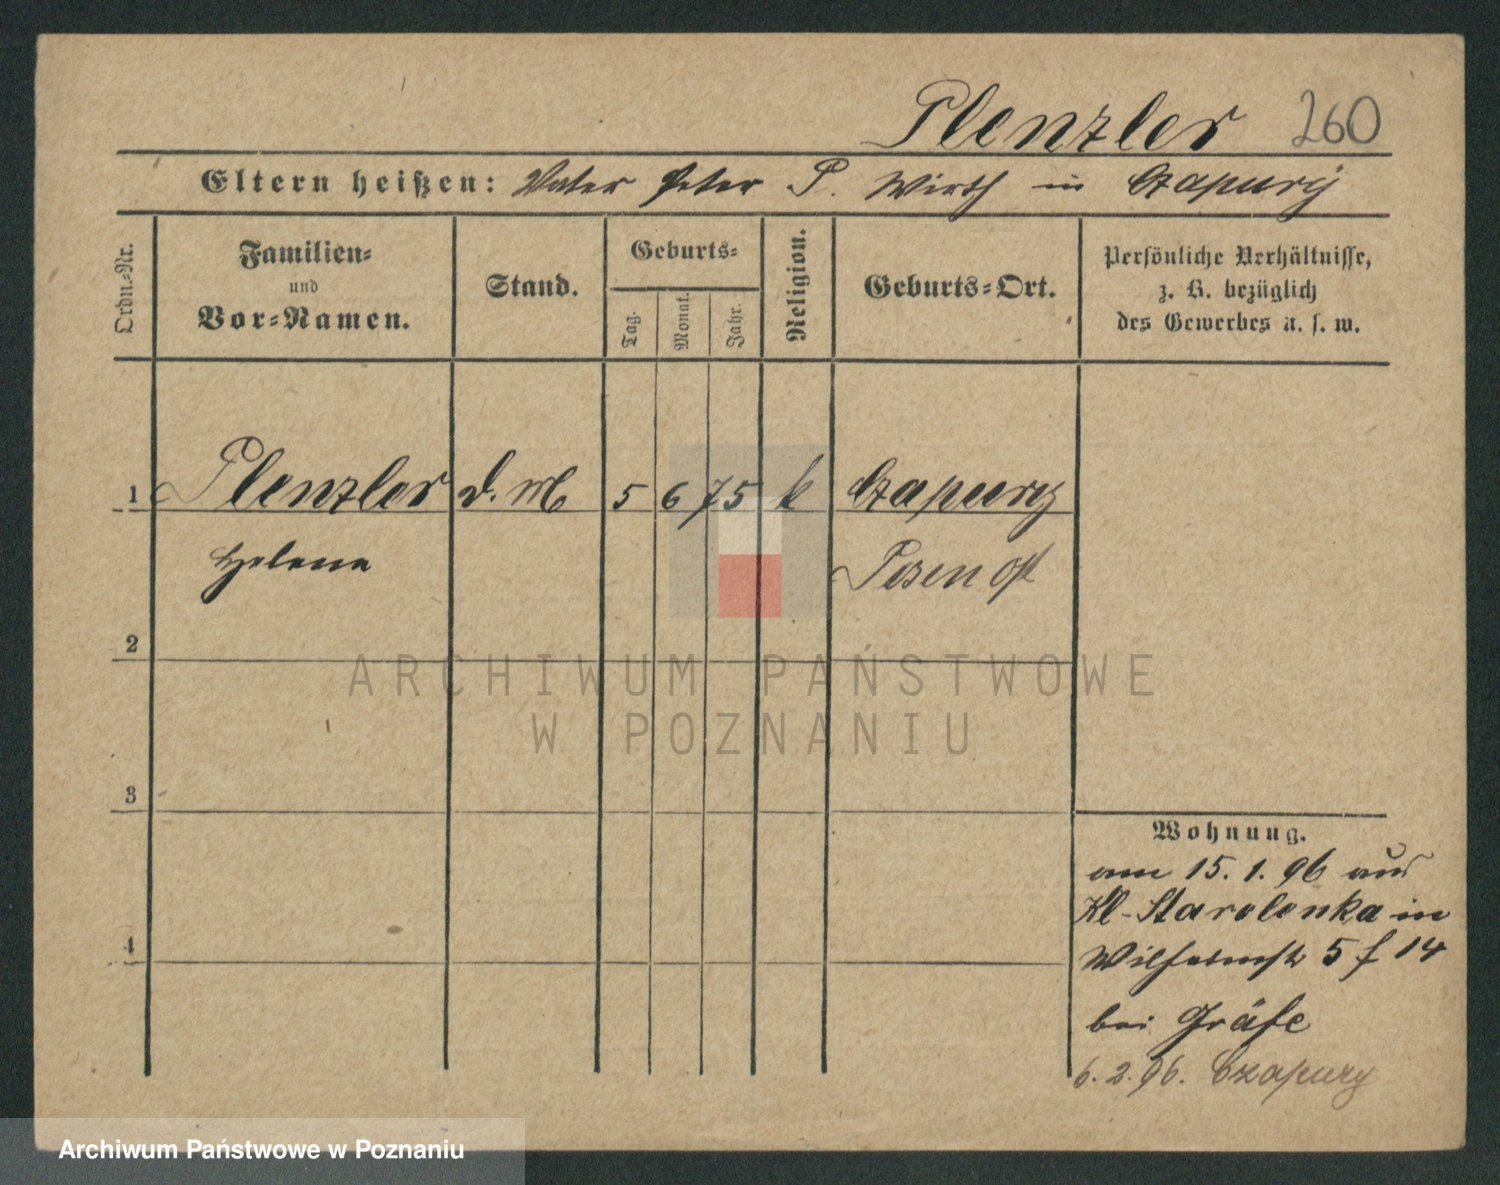 Plenzler 260
Eltern heißen: Vater Peter P. Wirth in Czapury
Ordn.-Nr.
Familien-
und
Vor-Namen.
Stand.
Geburts-
Tag.
Monat.
Jahr.
Religion.
Geburts-Ort.
Persönliche Verhältnisse,
z. B. bezüglich
des Gewerbes u. s. w.
1 Plenzler d. M 5 6 75 k Czapury
Helena Posen Ost
2
ARCHIWUM PAŃSTWOWE
W POZNANIU
3
Wohnung.
am 15. 1. 96 aus
Kl-Starolenka in
Wilhelmstr 5 f 14
4
bei Gräfe
6. 2. 96. Czapury
Archiwum Państwowe w Poznaniu